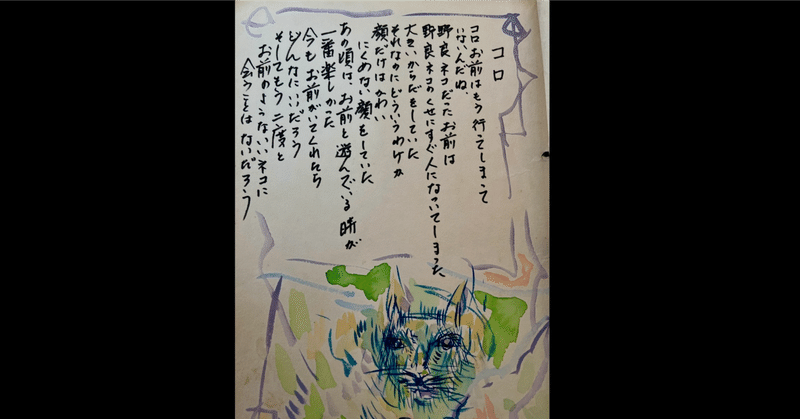 コロ
コロお前はもう行てしまって
いないんだね、
野良ネコだったお前は
野良ネコのくせにすぐ人になついてしまった
大きいからだをしていた
それなのにどういうわけか
顔だけはかわい
にくめない顔をしていた
あの頃は、お前と遊んでいる時が
一番楽しかった
今もお前がいてくれたら
どんなにいいだろう
そしてもう二度と
お前のようないいネコに
会うことはないだろう